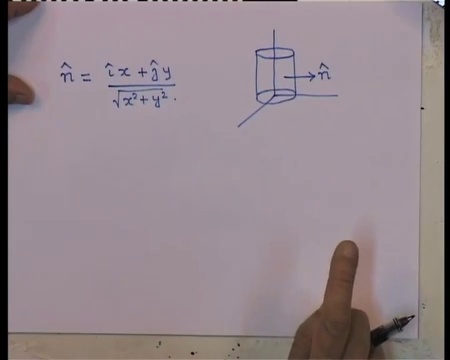 n̂ = (î x + ĵ y) / √(x² + y²).
n̂